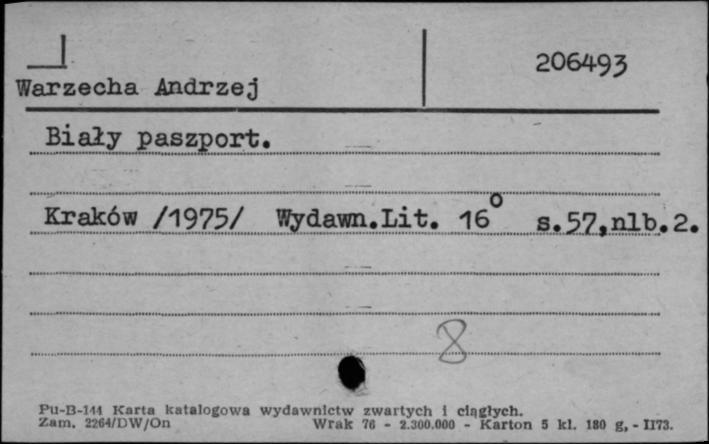 206493
Warzecha Andrzej
Biały paszport.
Kraków /1975/ Wydawn.Lit. 16° s.57,nlb.2.
8
Pu-B-144 Karta katalogowa wydawnictw zwartych i ciągłych.
Zam. 2264/DW/On Wrak 76 - 2.300.000 - Karton 5 kl. 180 g, - II73.